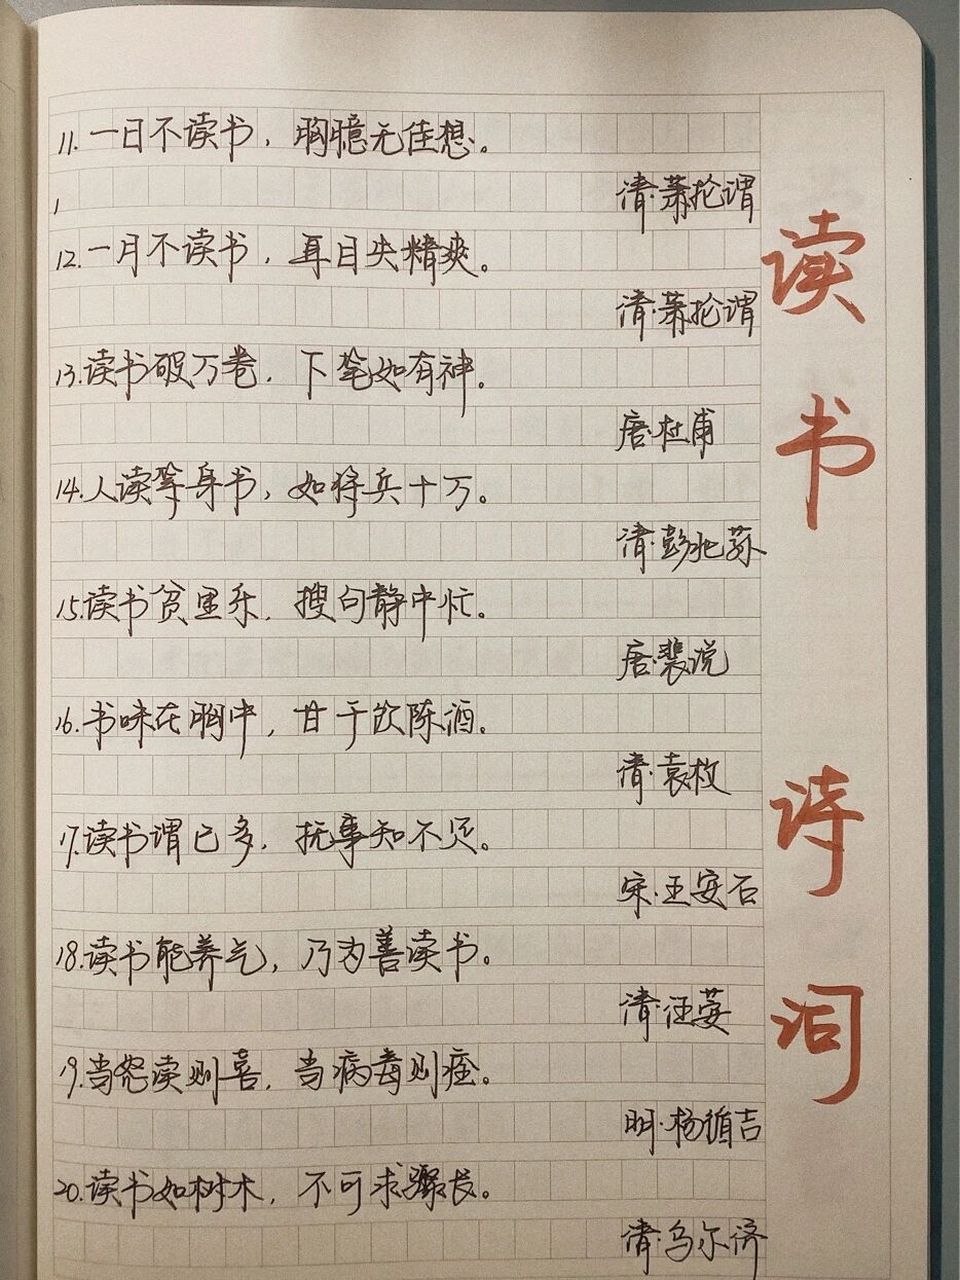 11.一日不读书，胸臆无佳想。
清·萧抡谓
12.一月不读书，耳目失精爽。
清·萧抡谓
13.读书破万卷，下笔如有神。
唐·杜甫
14.人读等身书，如将兵十万。
清·彭兆荪
15.读书贫里乐，搜句静中忙。
唐·裴说
16.书味在胸中，甘于饮陈酒。
清·袁枚
17.读书谓已多，抚事知不足。
宋·王安石
18.读书能养气，乃为善读书。
清·汪荌
19.当怒读则喜，当病毒则痊。
明·杨循吉
20.读书如树木，不可求骤长。
清·乌尔济
读书 诗词